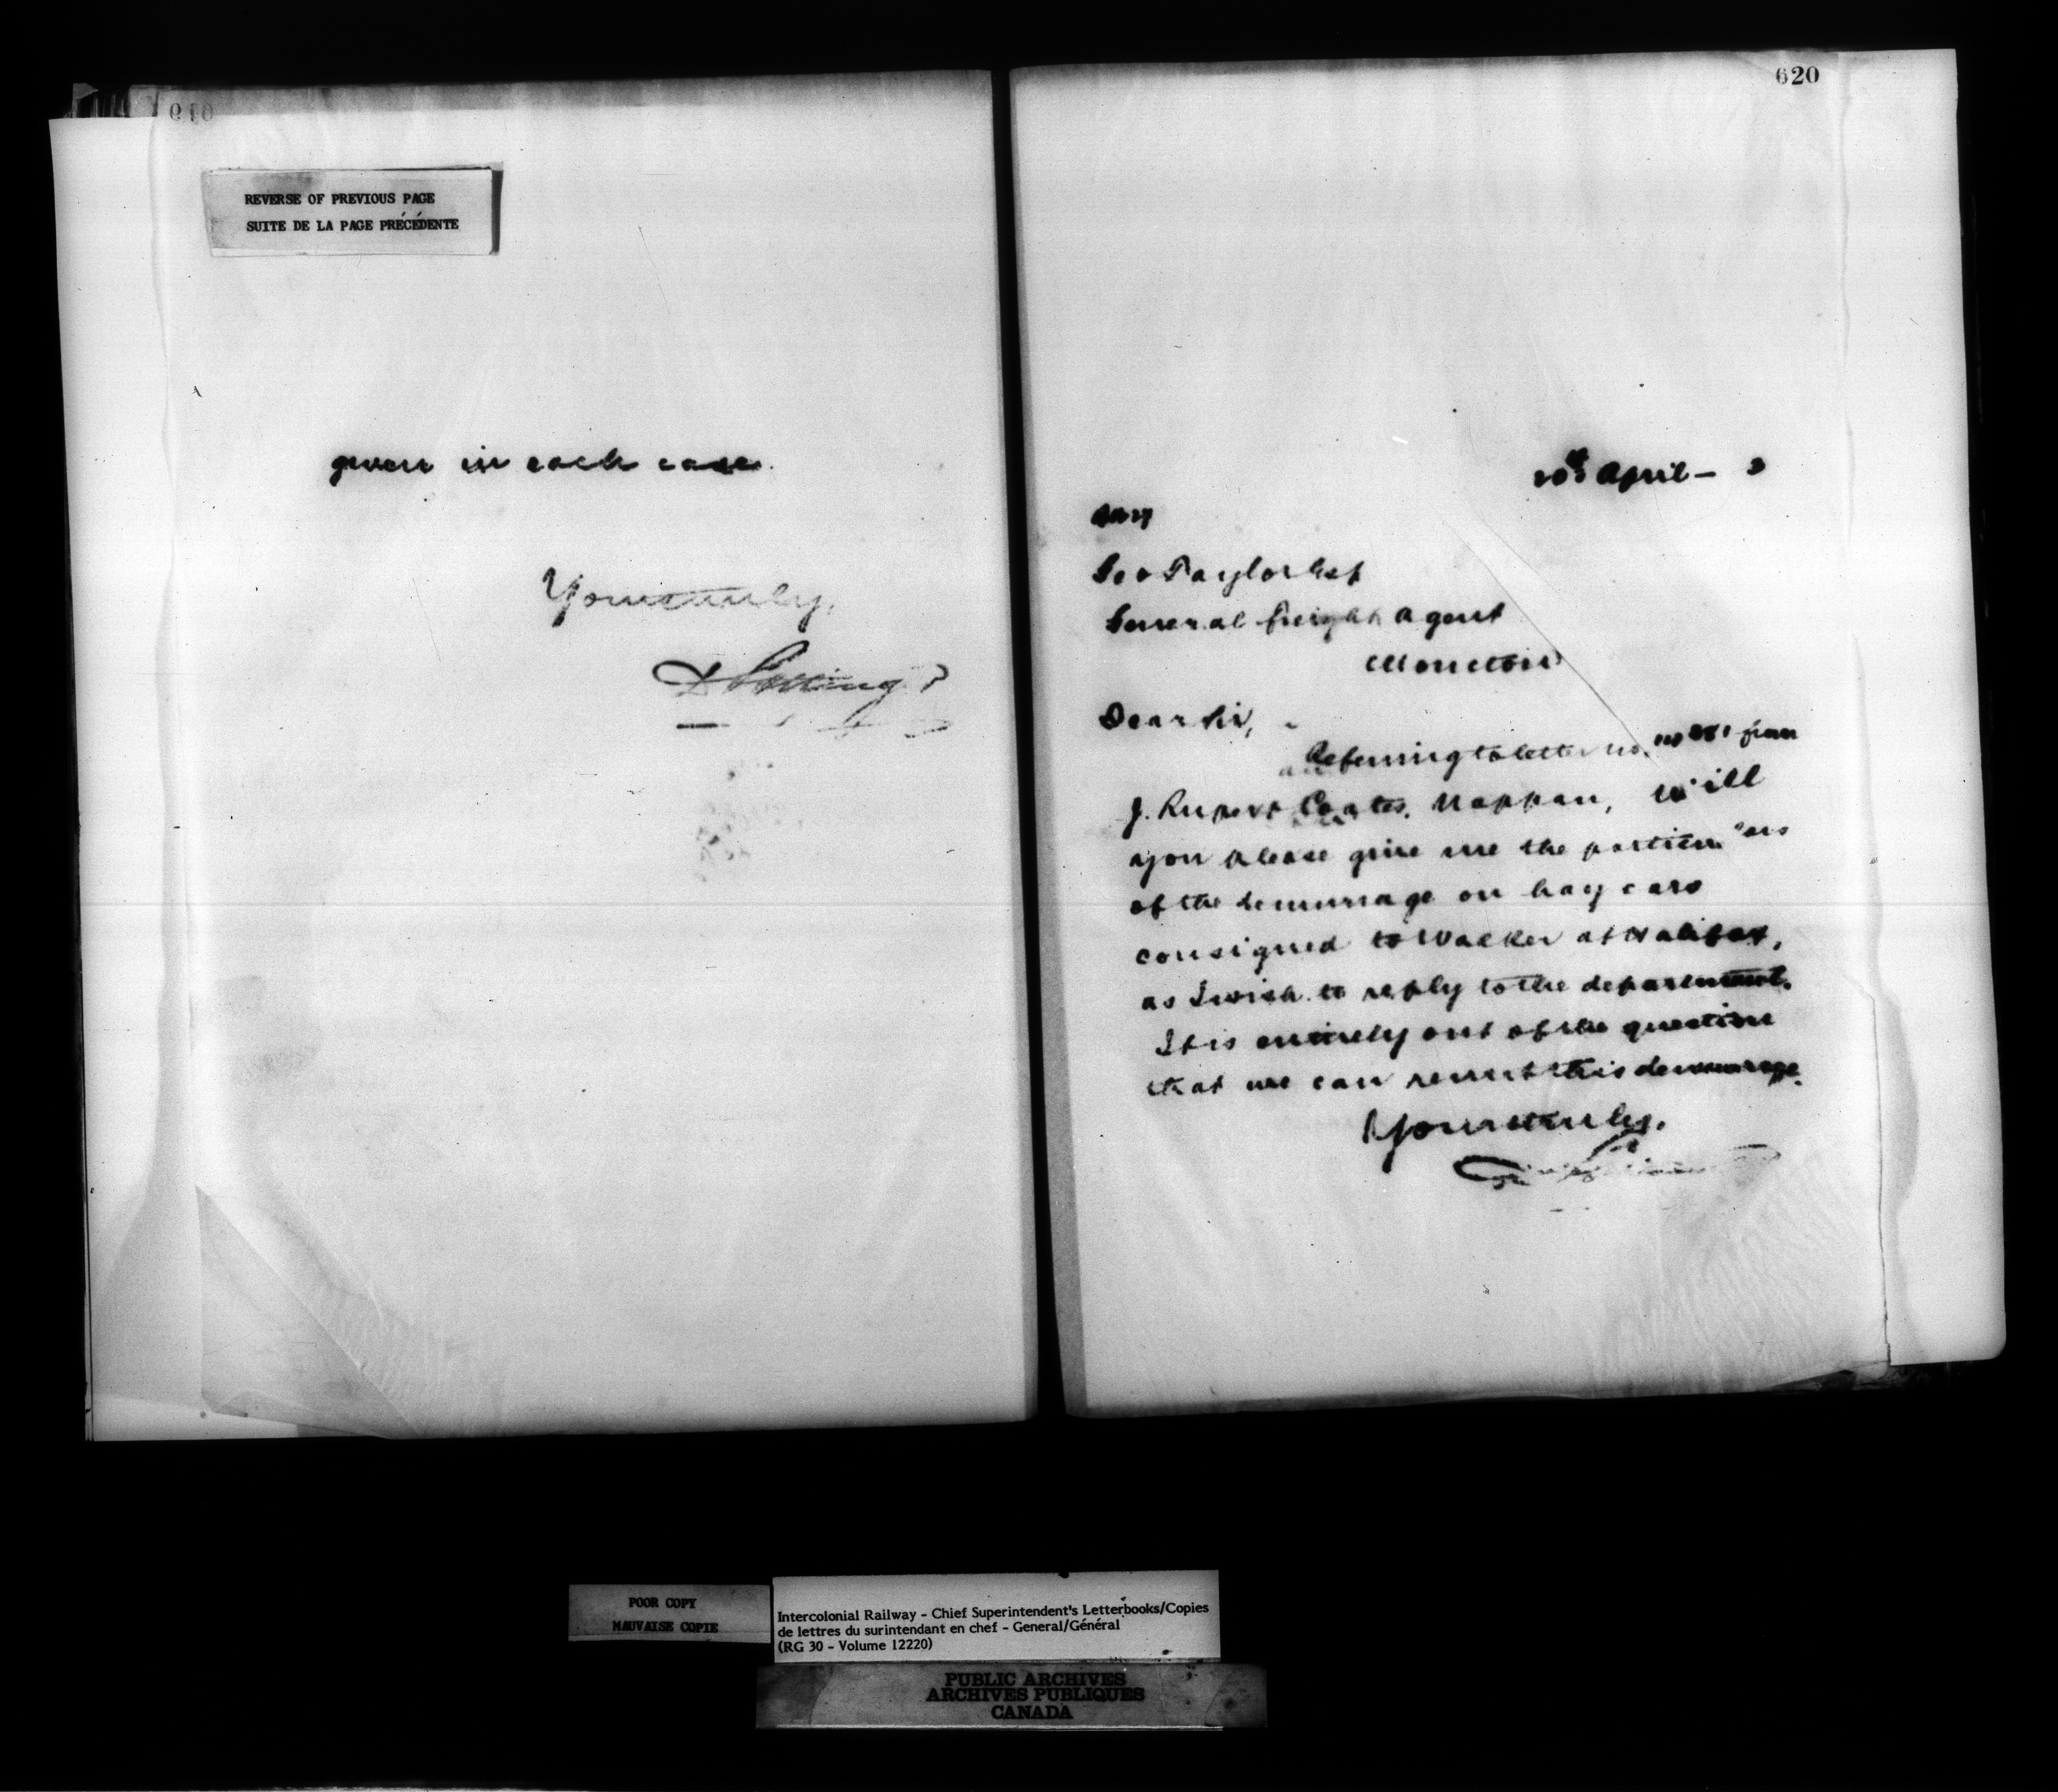 REVERSE OF PREVIOUS PAGE
SUITE DE LA PAGE PRÉCÉDENTE
given in each case.
Yours truly,
D Pottinger
620
20th April - 3
Geo Taylor Esq
General freight Agent
Moncton
Dear Sir,
Referring to letter no. from
J. Rupert Coates, Nappan, will
you please give me the particulars
of the demurrage on hay cars
consigned to Walker at Halifax,
as I wish to reply to the department.
It is entirely out of the question
that we can remit this demurrage.
Yours truly,
POOR COPY
MAUVAISE COPIE
Intercolonial Railway - Chief Superintendent's Letterbooks/Copies
de lettres du surintendant en chef - General/Général
(RG 30 - Volume 12220)
PUBLIC ARCHIVES
ARCHIVES PUBLIQUES
CANADA